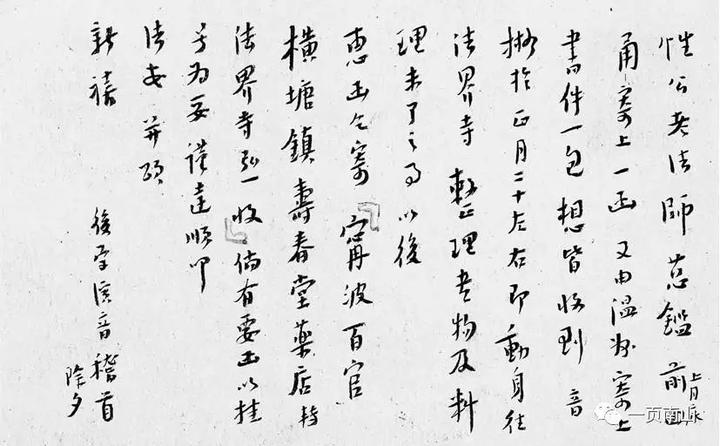 性公老法師慈鑑 前由
甬寄上一函又由溫州寄上
書件一包想皆收到 音
擬於正月二十左右即動身往
法界寺 整理書物及料
理未了之事以後
惠函乞寄『寧波百官
橫塘鎮壽春堂藥店轉
法界寺弘一收』倘有要函以挂
号为妥謹達順叩
法安 并頌
新禧 後學演音稽首
除夕
一页南山